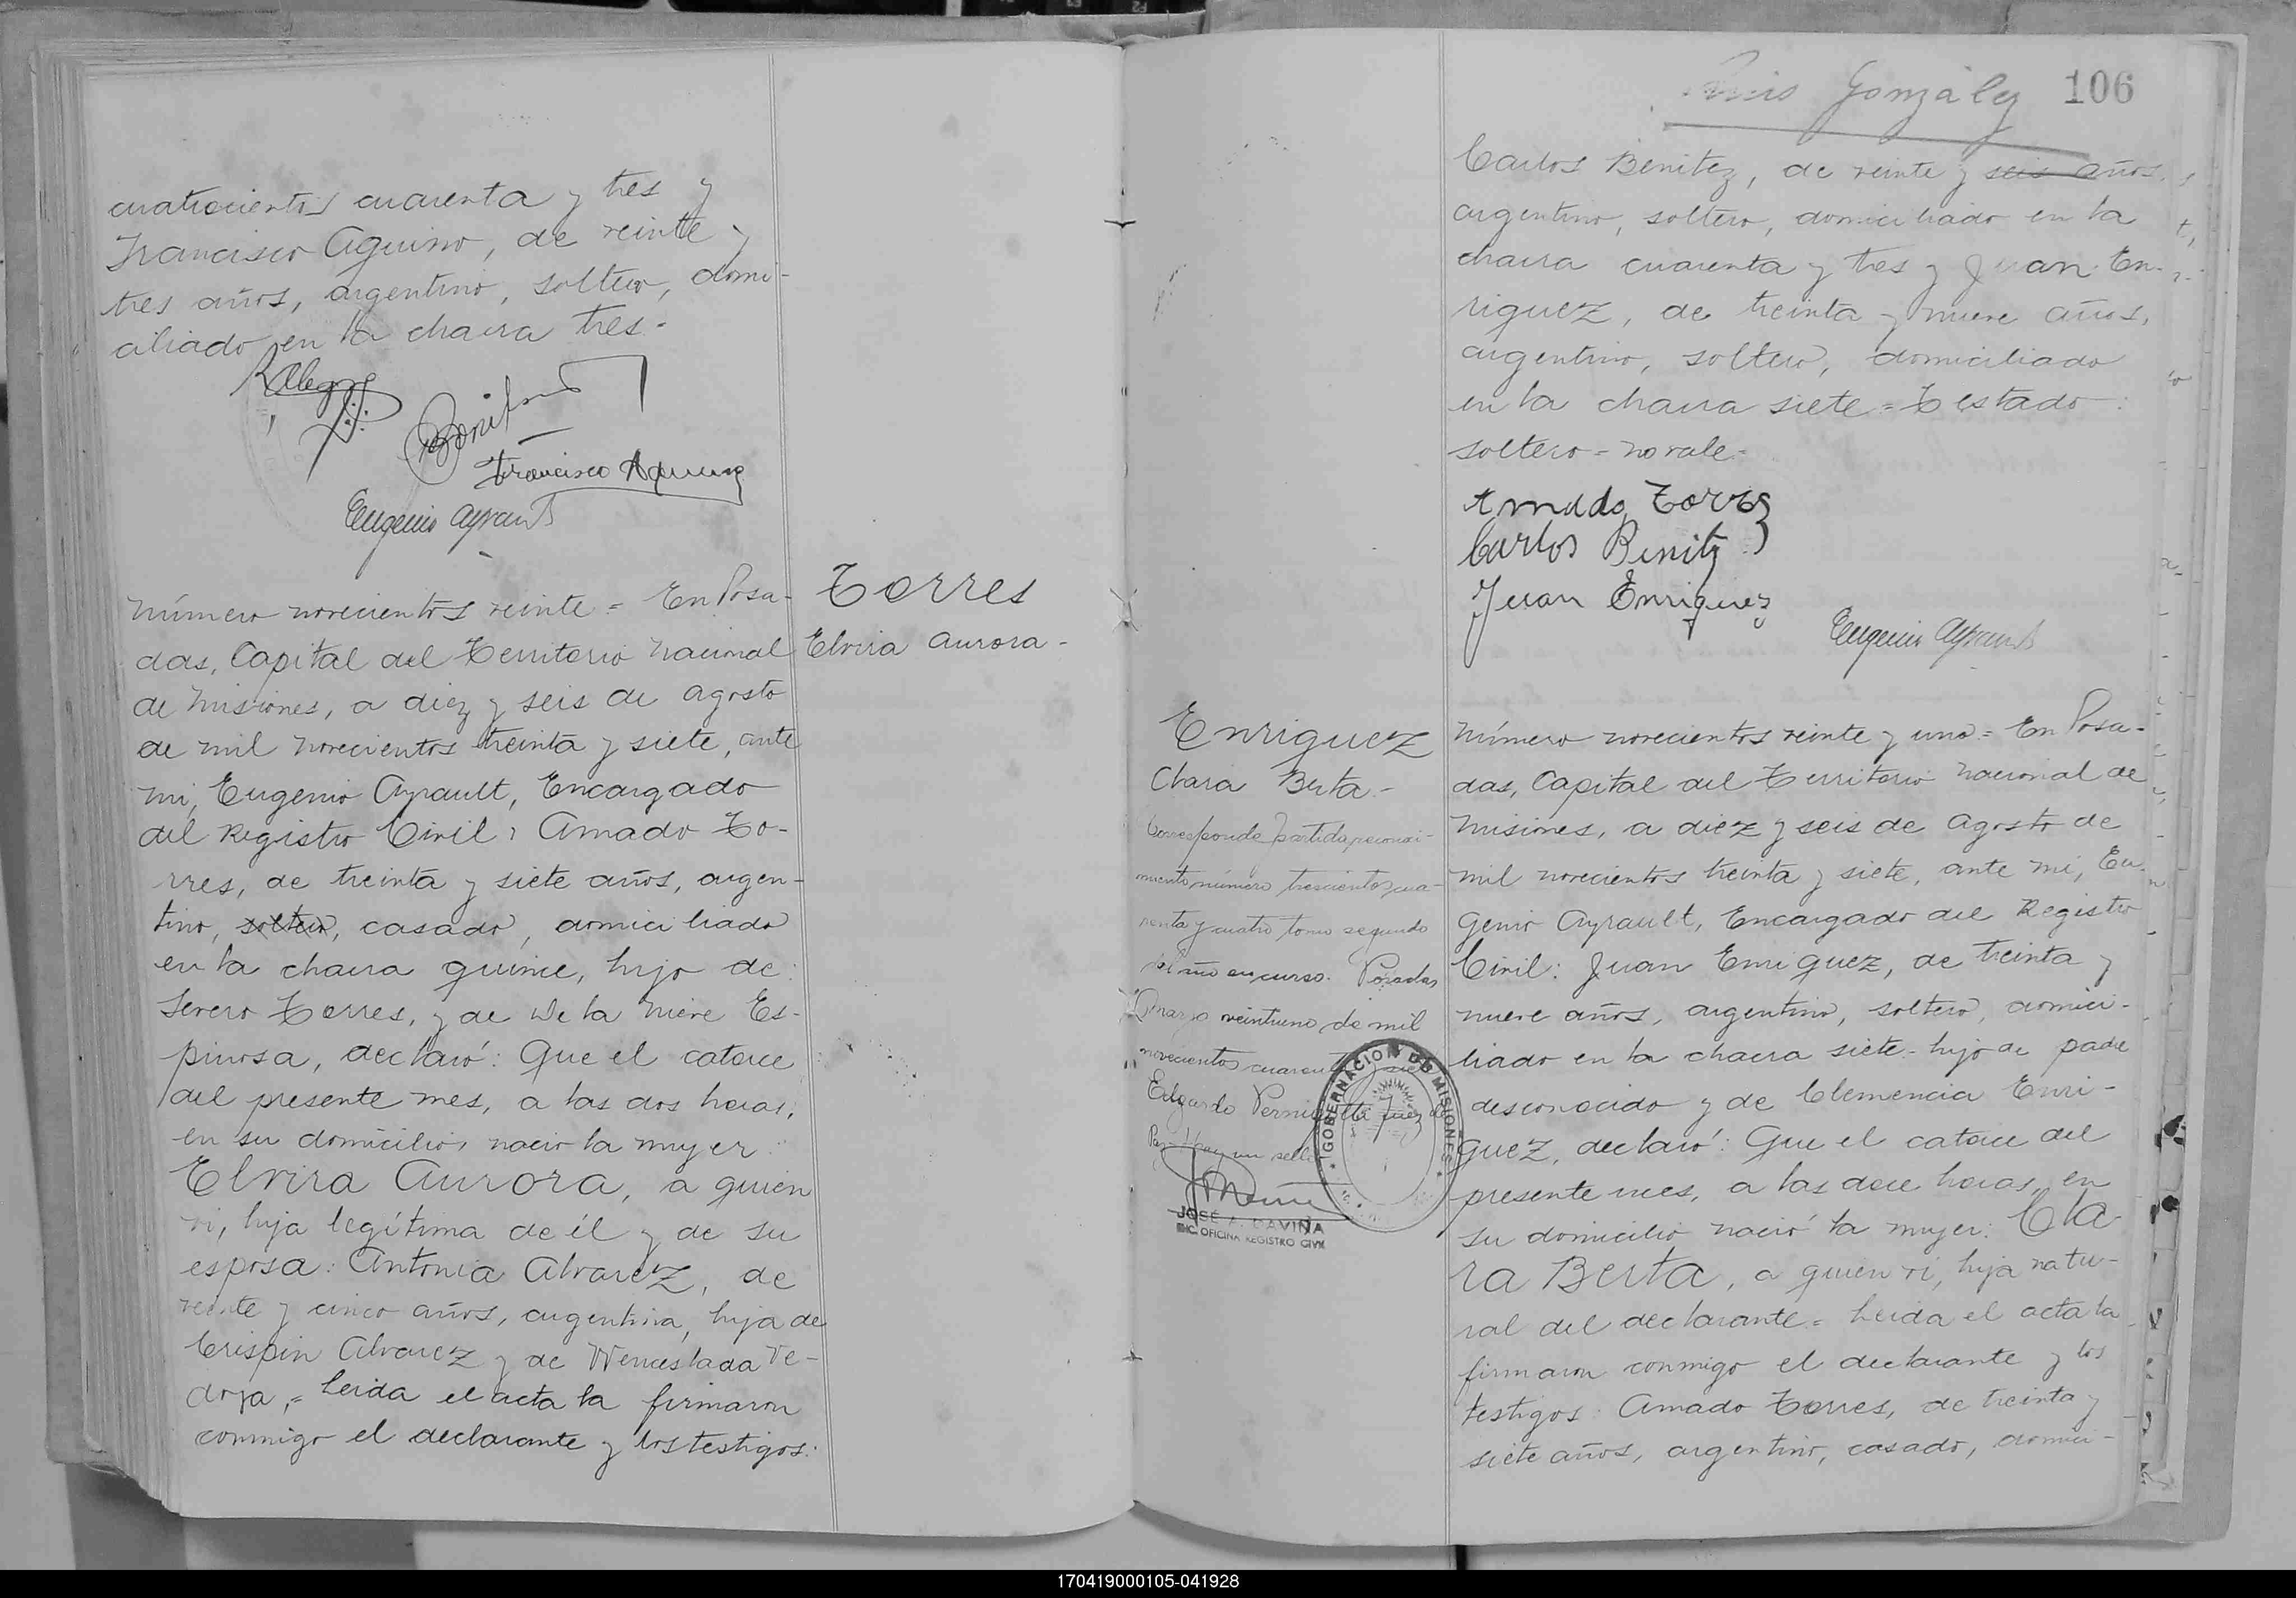 cuatrocientos cuarenta y tres y
Francisco Aquino, de veinte y
tres años, argentino, soltero, domi-
ciliado en la chacra tres.-
Francisco Aquino
Eugenio Ayrault
Número novecientos veinte = En Posa-
das, Capital del Territorio Nacional
de Misiones, a diez y seis de agosto
de mil novecientos treinta y siete, ante
mi, Eugenio Ayrault, Encargado
del Registro Civil: Amado To-
rres, de treinta y siete años, argen-
tino, soltero, casado, domiciliado
en la chacra quince, hijo de:
Severo Torres, y de De la Nieve Es-
pinosa, declaró: Que el catorce
del presente mes, a las dos horas,
en su domicilio, nació la mujer:
Elvira Aurora, a quien
vi, hija legítima de él y de su
esposa: Antonia Alvarez, de
veinte y cinco años, argentina, hija de
Crispin Alvarez y de Wenceslada Ve-
doya,= Leida el acta la firmaron
conmigo el declarante y los testigos:
Torres
Elvira Aurora-
Luis González 106
Carlos Benitez, de veinte y seis años,
argentino, soltero, domiciliado en la
chacra cuarenta y tres y Juan En-
riquez, de treinta y nueve años,
argentino, soltero, domiciliado
en la chacra siete = Testado:
soltero = no vale =
Amado Torres
Carlos Benitz
Juan Enriquez
Eugenio Ayrault
Enriquez
Clara Berta.-
Corresponde partida reconoci-
miento número trescientos cua-
renta y cuatro tomo segundo
del año en curso. Posadas
Marzo veintiuno de mil
novecientos cuarenta y siete
Edgardo Juez de
Paz - Hay un sello
GOBERNACION DE MISIONES
JOSÉ F. DAVIÑA
ENC. OFICINA REGISTRO CIVIL
Número novecientos veinte y uno = En Posa-
das, Capital del Territorio Nacional de
Misiones, a diez y seis de agosto de
mil novecientos treinta y siete, ante mi, Eu-
genio Ayrault, Encargado del Registro
Civil: Juan Enriquez, de treinta y
nueve años, argentino, soltero, domici-
liado en la chacra siete - hijo de padre
desconocido y de Clemencia Enri-
quez, declaró: Que el catorce del
presente mes, a las doce horas, en
su domicilio nació la mujer: Cla-
ra Berta, a quien vi, hija natu-
ral del declarante = Leida el acta la
firmaron conmigo el declarante y los
testigos: Amado Torres, de treinta y
siete años, argentino, casado, domici-
170419000105-041928